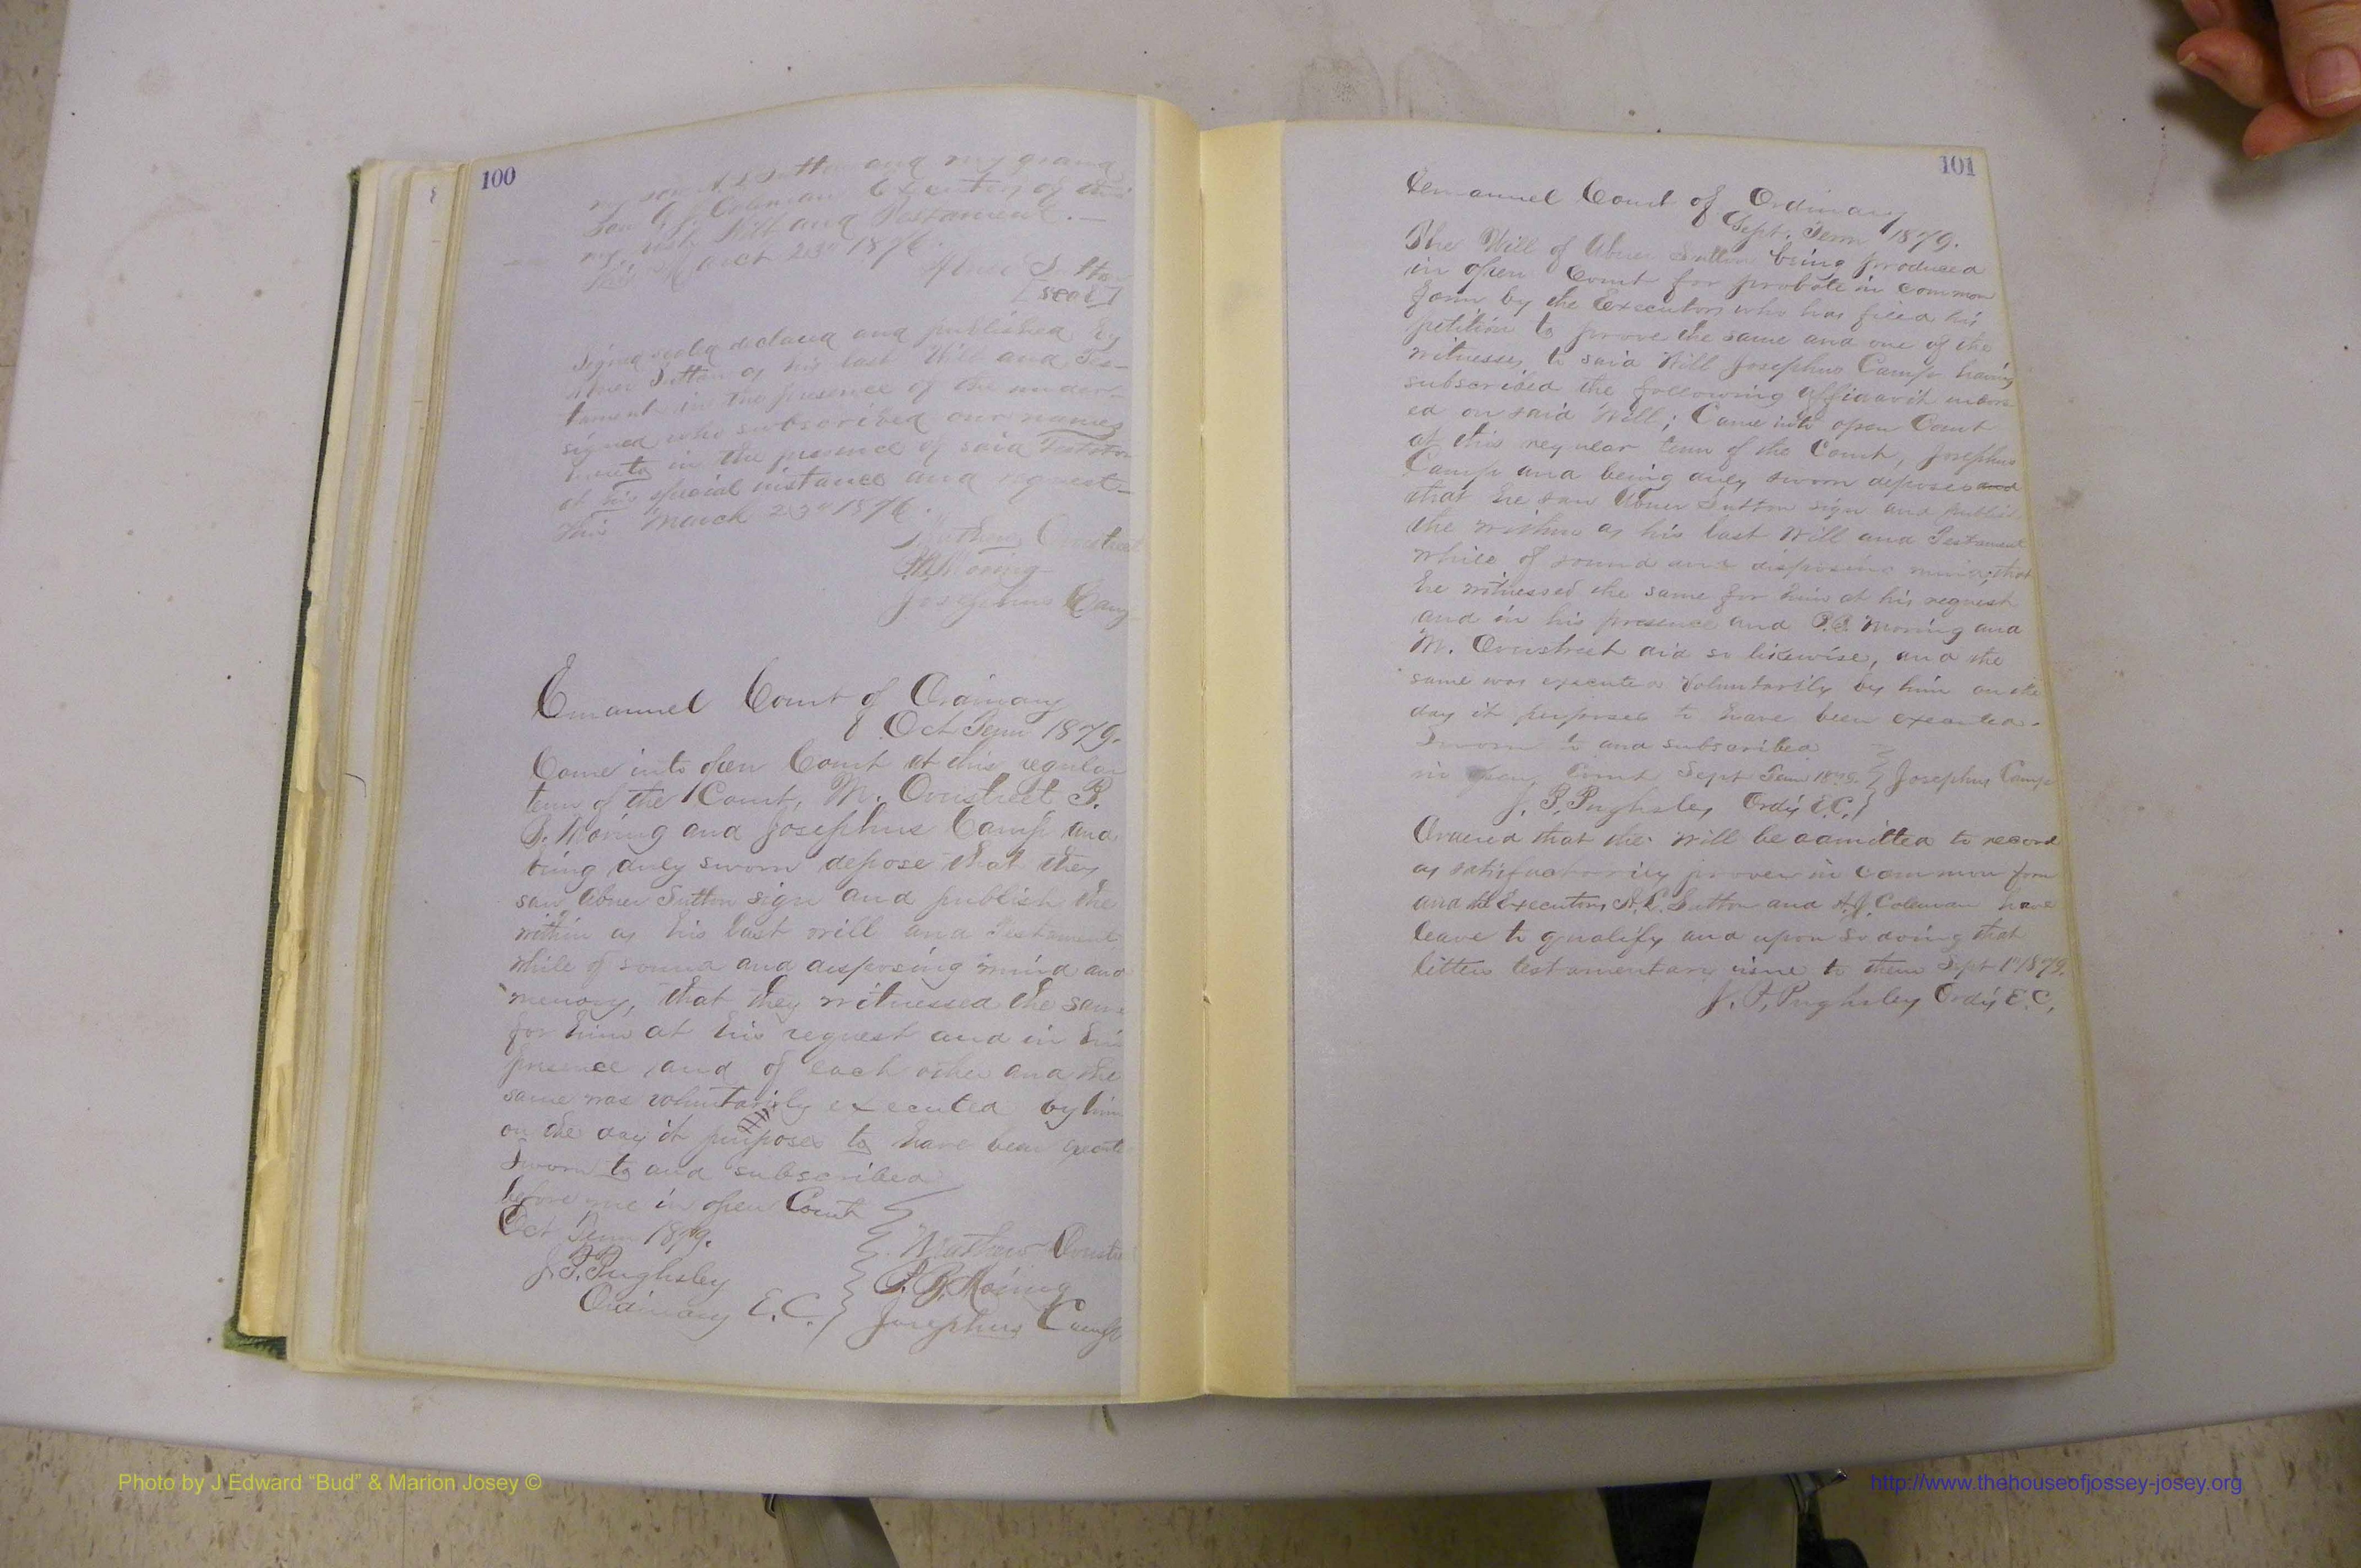 100
my son A. L. Sutton and my grand
Son G. J. Coleman Executors of this
my last Will and Testament.—
This March 23rd 1876.
Abner Sutton
[seal]
Signed sealed declared and published by
Abner Sutton as his last Will and Tes-
tament in the presence of the under-
signed who subscribed our names
hereto in the presence of said Testator
at his special instance and request—
this March 23rd 1876.
Mathew Overstreet
Moring
Josephus Camp
Emanuel Court of Ordinary
Oct Term 1879.
Came into open Court at this regular
term of the Court, M. Overstreet P.
B. Moring and Josephus Camp and
being duly sworn depose that they
saw Abner Sutton sign and publish the
within as his last will and Testament
while of sound and disposing mind and
memory, that they witnessed the same
for him at his request and in his
presence and of each other and the
same was voluntarily executed by him
on the day it purposes to have been
Sworn to and subscribed
before me in open Court
Oct Term 1879.
J. P. Pughsley
Ordinary E. C.
Mathew
P. B. Moring
Josephus Camp
101
Emanuel Court of Ordinary
Sept. Term 1879.
The Will of Abner Sutton being produced
in open Court for probate in common
form by the Executors who has filed his
petition to prove the same and one of the
witnesses to said Will Josephus Camp having
subscribed the following affidavit indors
ed on said Will; Came into open Court
at this regular term of the Court, Josephus
Camp and being duly sworn deposes and
that he saw Abner Sutton sign and publish
the within as his last Will and Testament
while of sound and disposing mind, that
he witnessed the same for him at his request
and in his presence and P. B. Moring and
M. Overstreet did so likewise, and the
same was executed voluntarily by him on the
day it purposes to have been executed.
Sworn to and subscribed
in open Court Sept Term 1879. Josephus Camp
J. P. Pughsley Ordy E. C.
Ordered that the will be admitted to record
as satisfactorily proven in common form
and the Executors A. L. Sutton and Coleman have
leave to qualify and upon so doing that
letters testamentary issue to them Sept 1st 1879.
J. P. Pughsley Ordy E. C.
Photo by J Edward “Bud” & Marion Josey ©
http://www.thehouseofjossey-josey.org